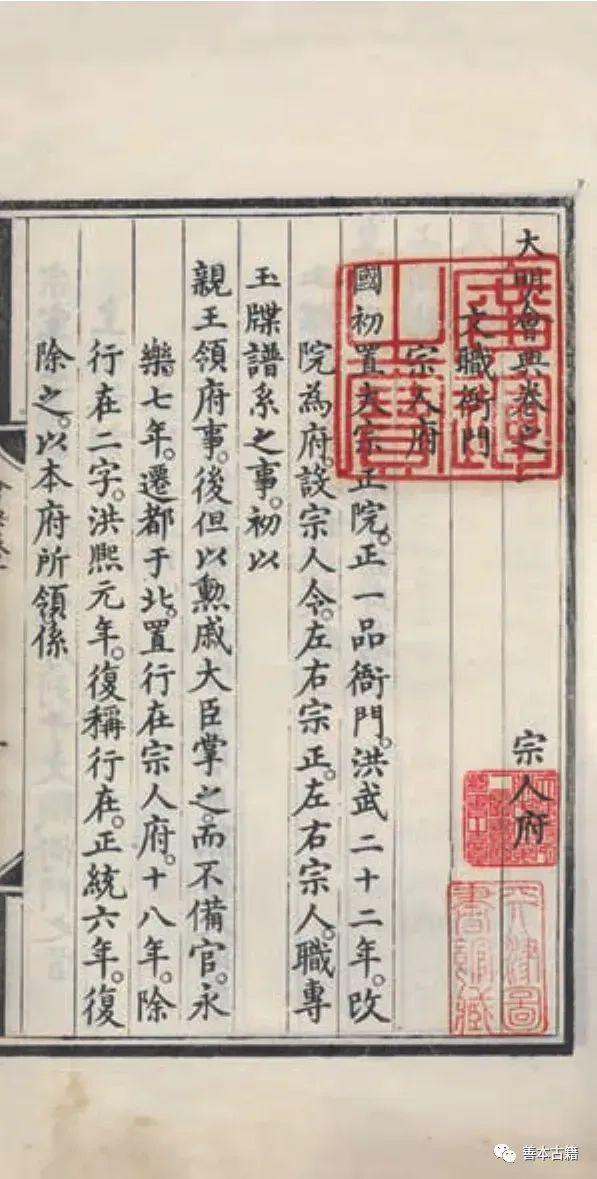 大明會典卷之一　宗人府
文職衙門
宗人府
國初置大宗正院。正一品衙門。洪武二十二年。改
院為府。設宗人令。左右宗正。左右宗人。職專
玉牒譜系之事。初以
親王領府事。後但以勲戚大臣掌之。而不備官。永
樂七年。遷都于北。置行在宗人府。十八年。除
行在二字。洪熙元年。復稱行在。正統六年。復
除之。以本府所領係
天津圖
書館藏
善本古籍